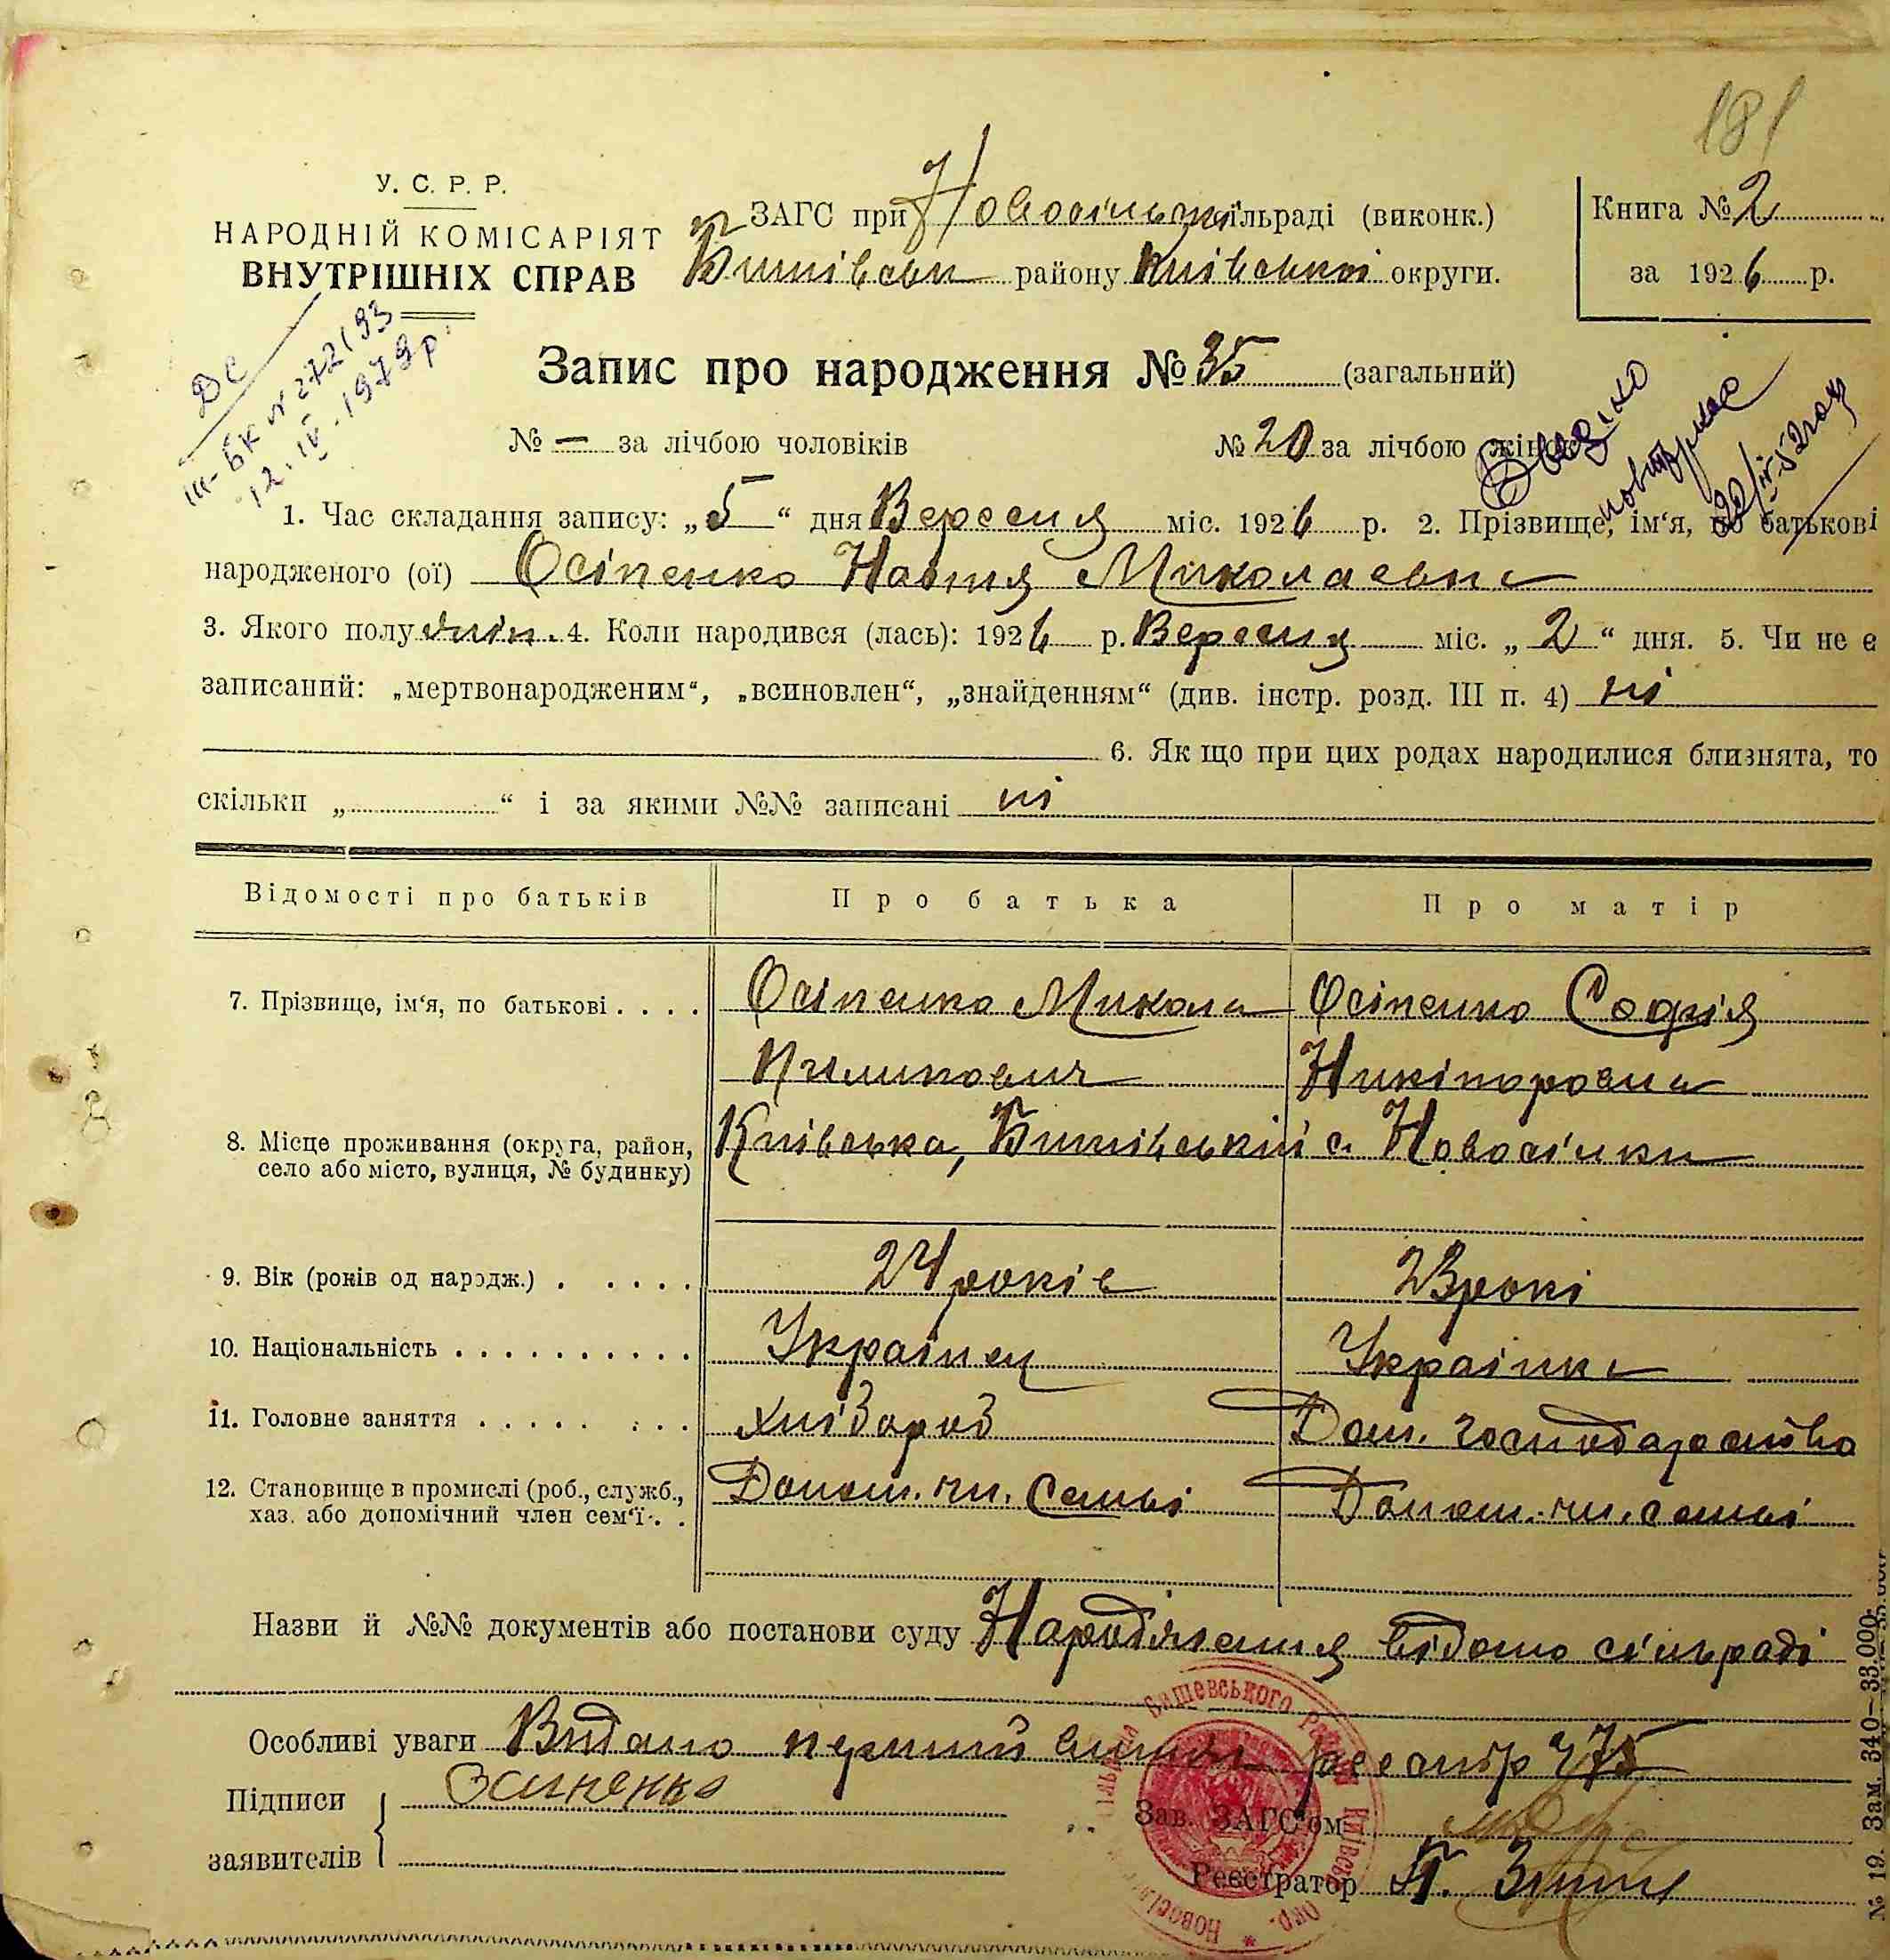 181
У. С. Р. Р.
НАРОДНІЙ КОМІСАРІЯТ
ВНУТРІШНІХ СПРАВ
ЗАГС при Новосільській сільраді (виконк.)
Бишівськ району Київської округи.
Книга № 2
за 1926 р.
ДС
III-БК № 272193
12. IV. 1979 р.
Запис про народження № 35 (загальний)
№ — за лічбою чоловіків № 20 за лічбою жінок
повторное
1. Час складання запису: „5“ дня Вересня міс. 1926 р. 2. Прізвище, ім‘я, по батькові
народженого (ої) Осіпенко Настя Миколаевна
3. Якого полу жін. 4. Коли народився (лась): 1926 р. Вересня міс. „2“ дня. 5. Чи не є
записаний: „мертвонародженим“, „всиновлен“, „знайденням“ (див. інстр. розд. III п. 4) ні
6. Як що при цих родах народилися близнята, то
скільки „ “ і за якими №№ записані ні
Відомості про батьків Про батька Про матір
7. Прізвище, ім‘я, по батькові . . . . Осіпенко Микола Осіпенко Софія
Пилипович Никіпоровна
8. Місце проживання (округа, район, Київська, Бишівський с. Новосілки
село або місто, вулиця, № будинку)
9. Вік (років од народж.) . . . . . 24 років 23 рокі
10. Національність . . . . . . . . . . Украінец Украінка
11. Головне заняття . . . . . . . . Хлібороб Дом. господарство
12. Становище в промислі (роб., служб., Допом. чл. семьі Допом. чл. семьі
хаз. або допомічний член сем‘ї . .
Назви й №№ документів або постанови суду Народження відомо сільраді
Особливі уваги Видано перший випис реестр 475
Підписи
заявителів
Зав. ЗАГС‘ом
Реєстратор
№ 19. Зам. 340—33.000.